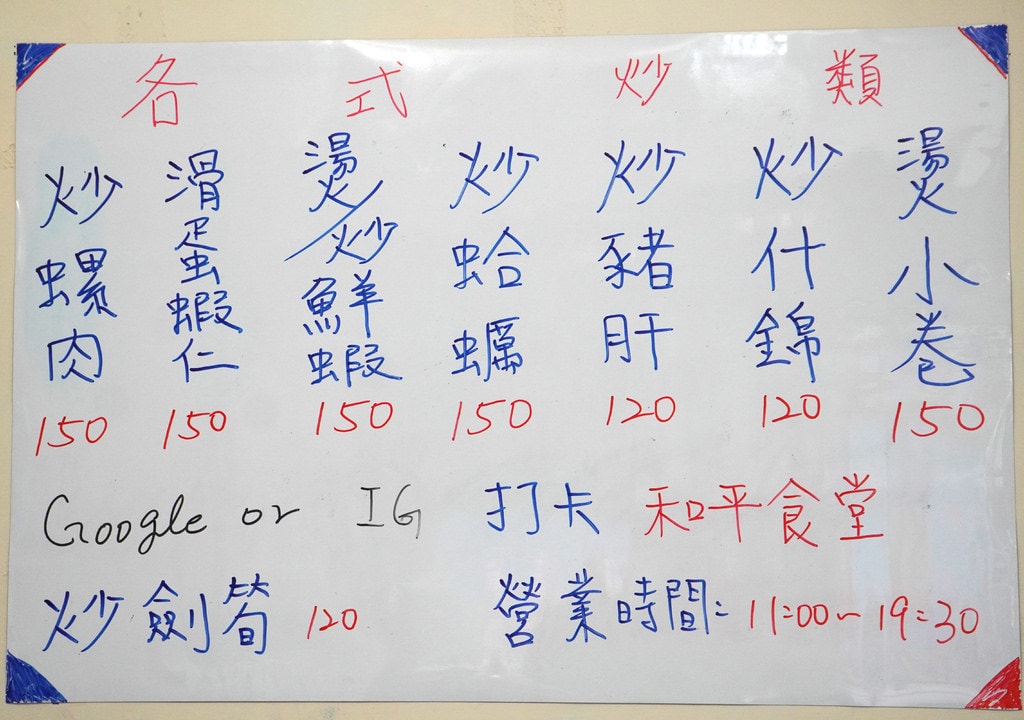 各式炒類
炒螺肉
150
滑蛋蝦仁
150
燙/炒鮮蝦
150
炒蛤蠣
150
炒豬肝
120
炒什錦
120
燙小卷
150
Google or IG 打卡 和平食堂
炒劍筍 120 營業時間: 11:00~19:30